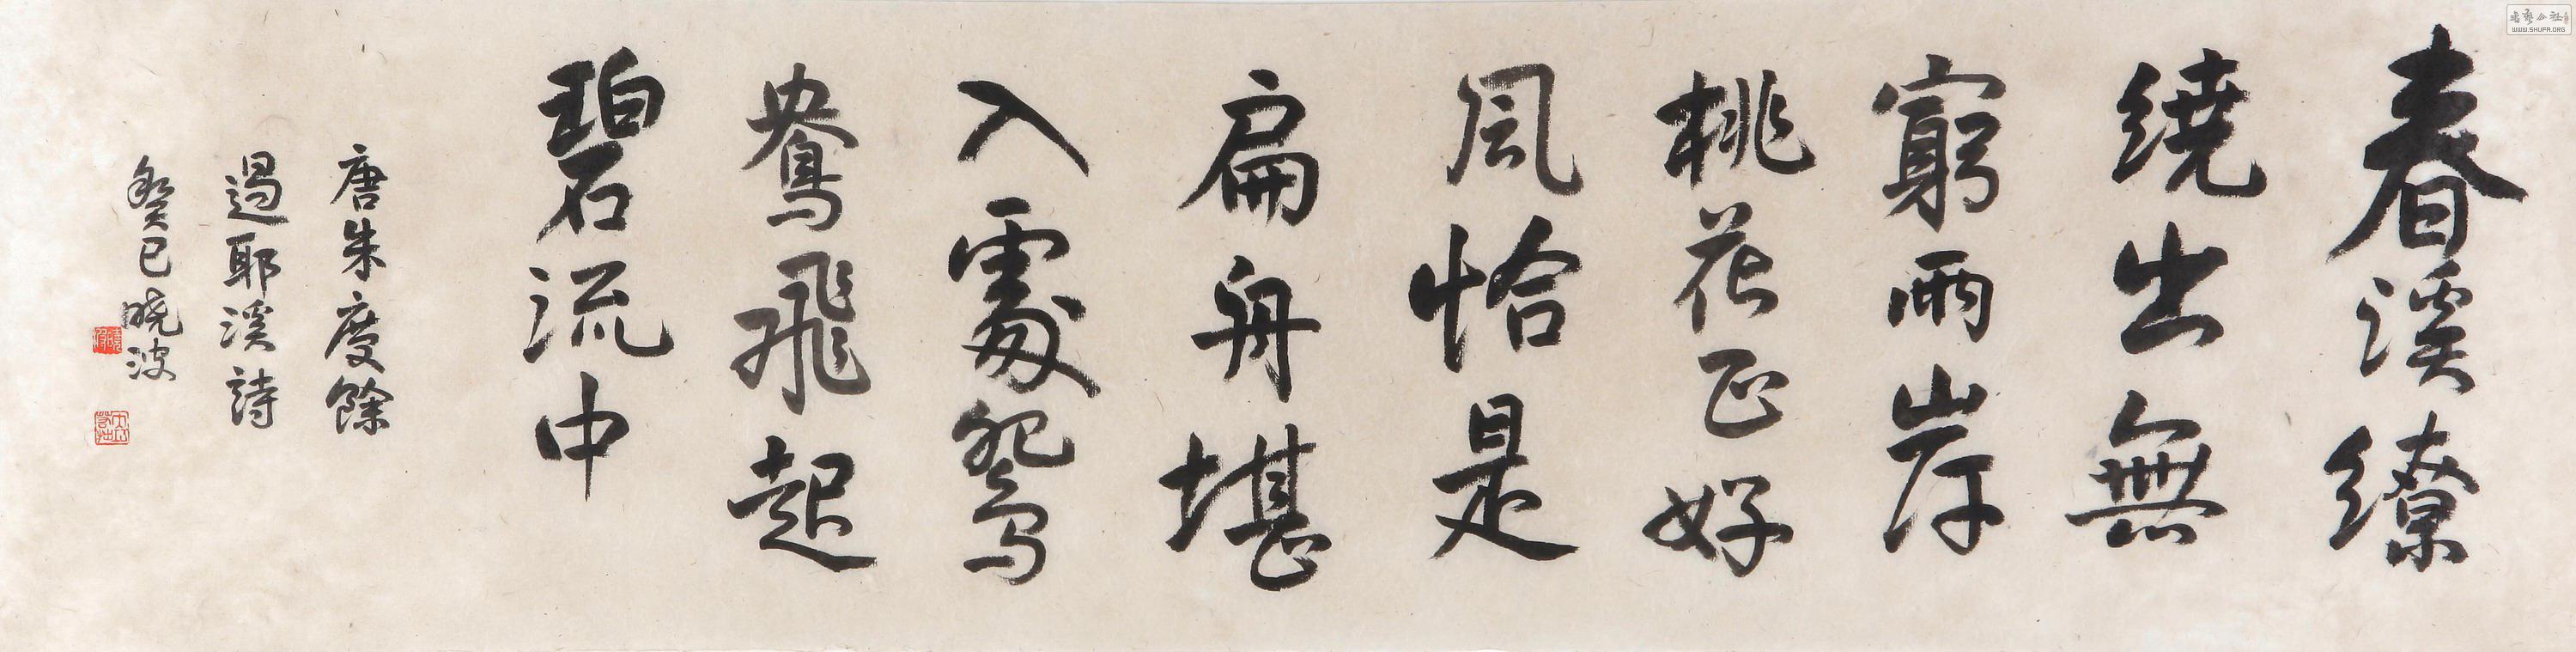 春溪繚
繞出無
窮兩岸
桃花正好
風恰是
扁舟堪
入處鴛
鴦飛起
碧流中
唐朱慶餘
過耶溪詩
癸巳曉波
WWW.SHUFA.ORG